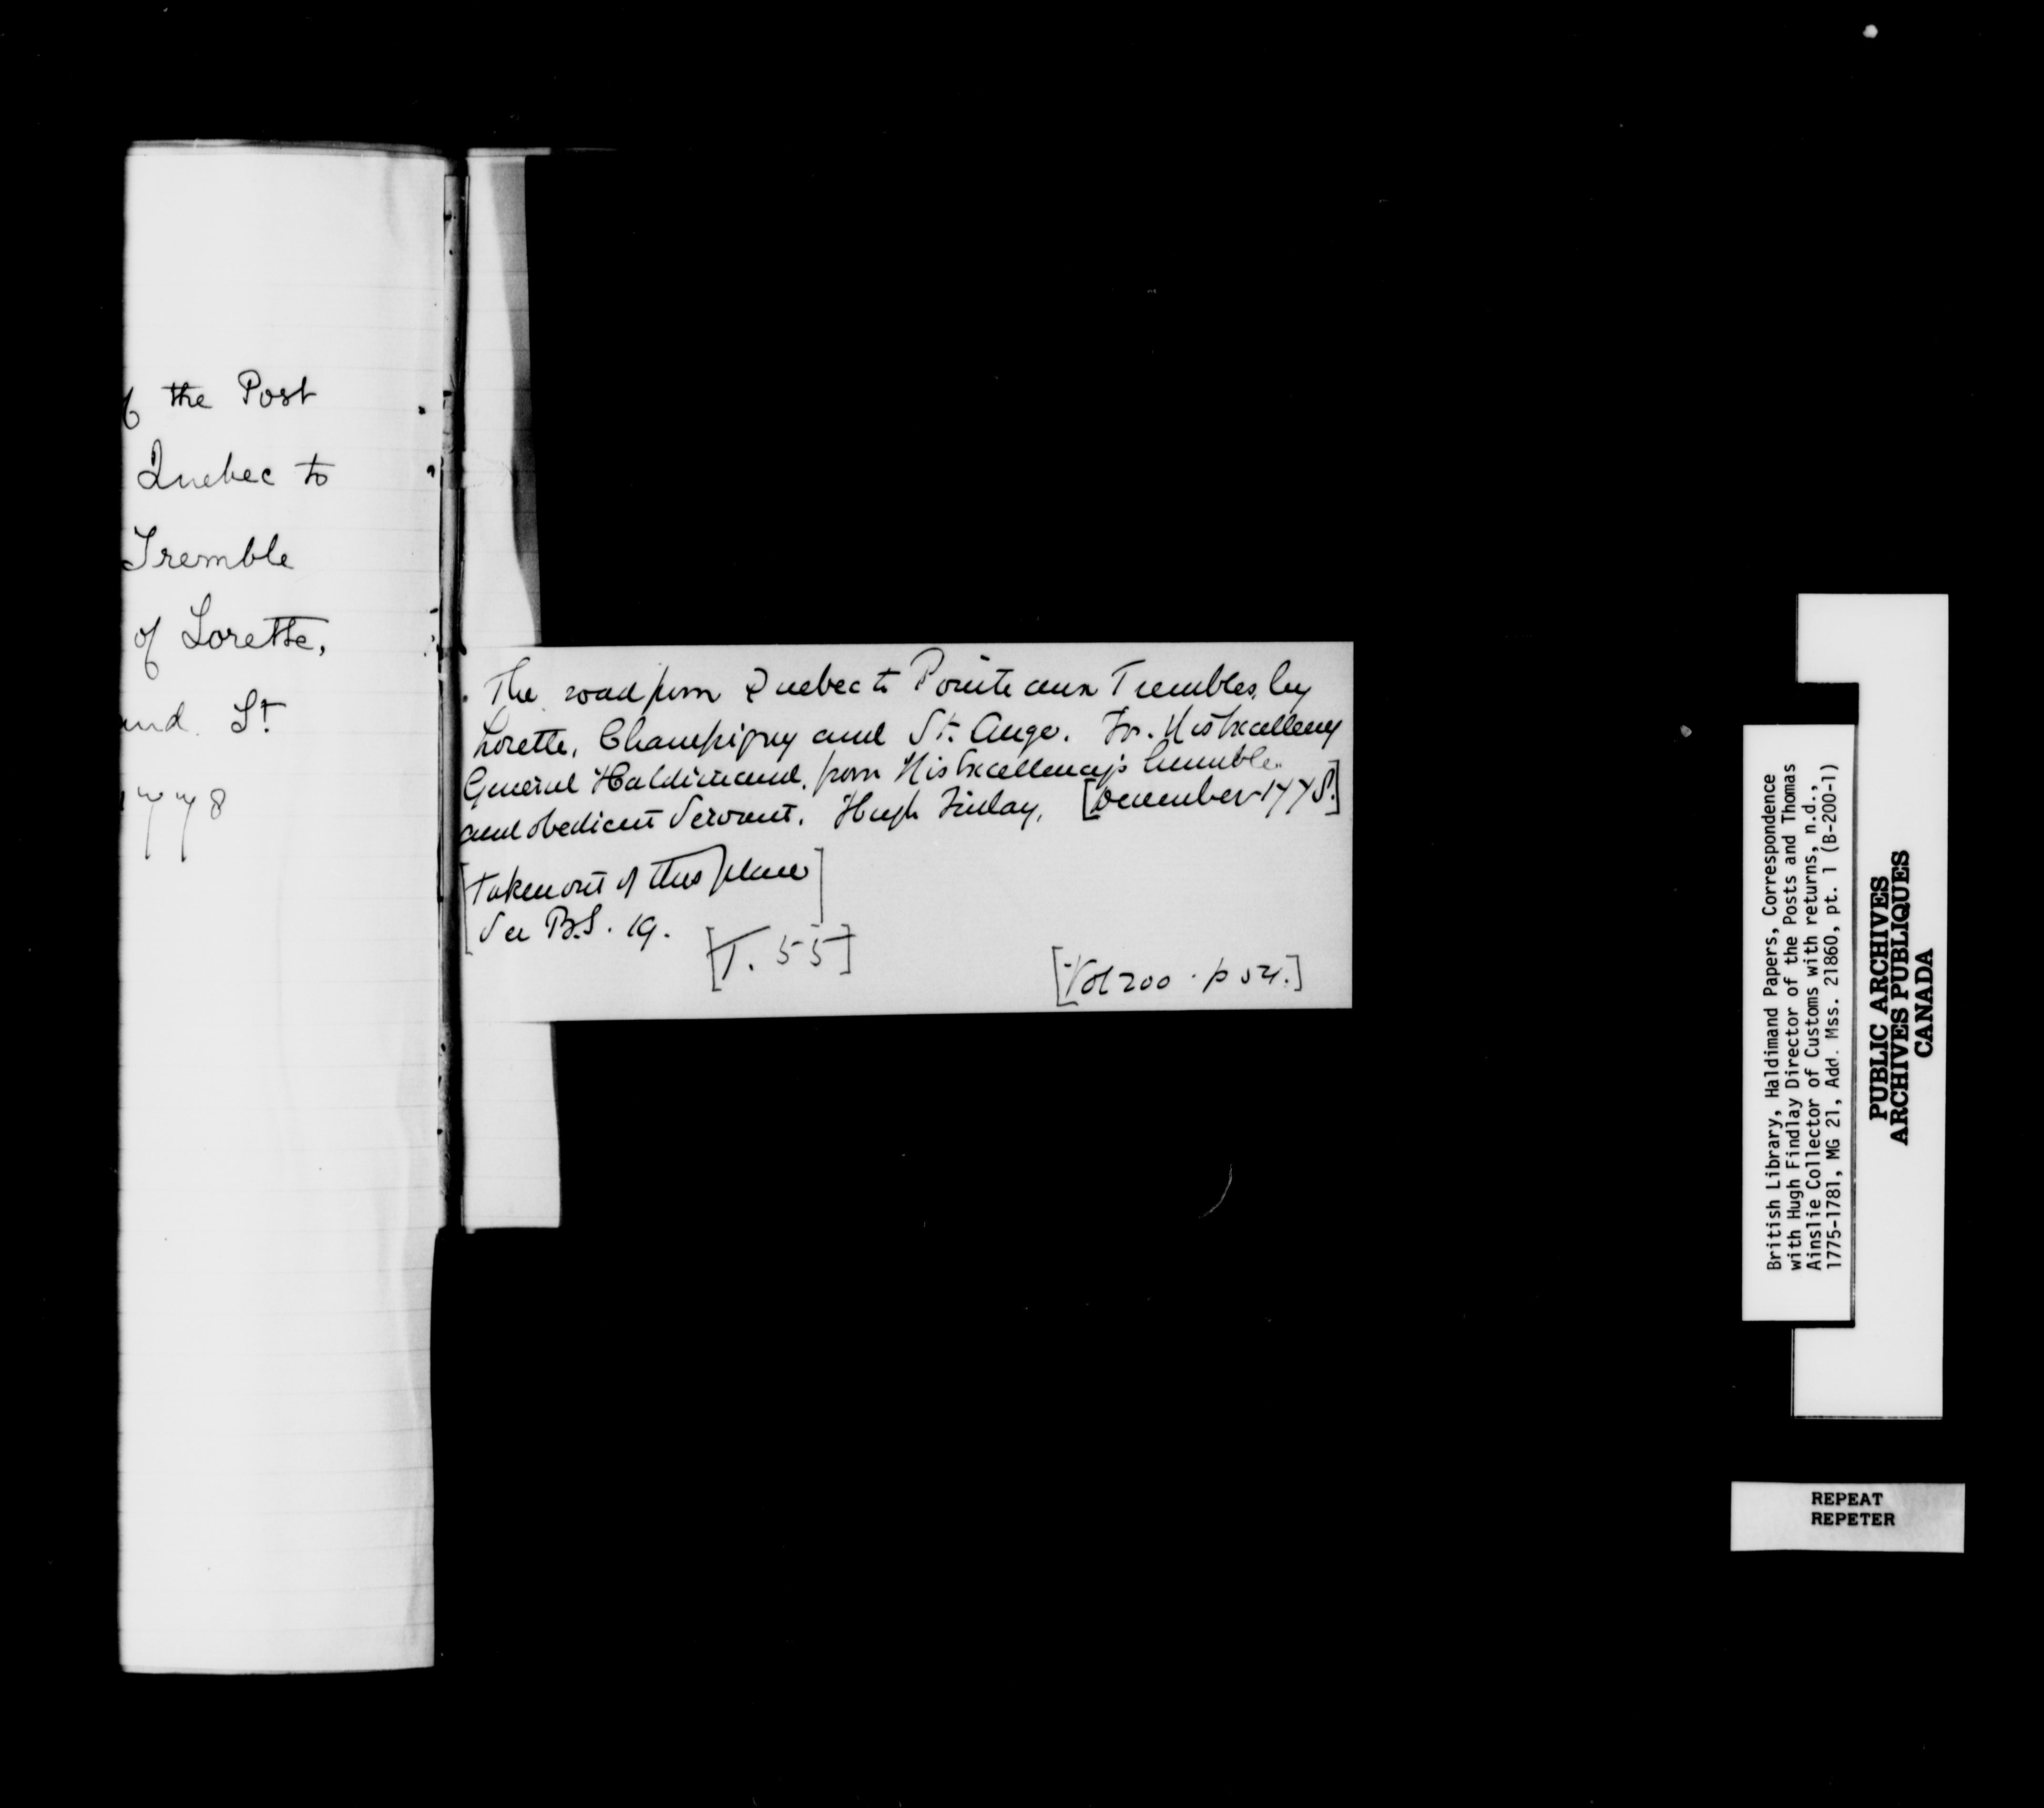 of the Post
Quebec to
Tremble
of Lorette,
and St
1778
The road from Quebec to Pointe aux Trembles, by
Lorette, Champigny and St. Ange. For His Excellency
General Haldimand, from His Excellency's humble
and obedient Servant, Hugh Finlay, [December 1778.]
[Taken out of this place]
See B.S. 19.
[T. 55]
[Vol 200 . p 54.]
British Library, Haldimand Papers, Correspondence
with Hugh Findlay Director of the Posts and Thomas
Ainslie Collector of Customs with returns, n.d.,
1775-1781, MG 21, Add. Mss. 21860, pt. 1 (B-200-1)
PUBLIC ARCHIVES
ARCHIVES PUBLIQUES
CANADA
REPEAT
REPETER